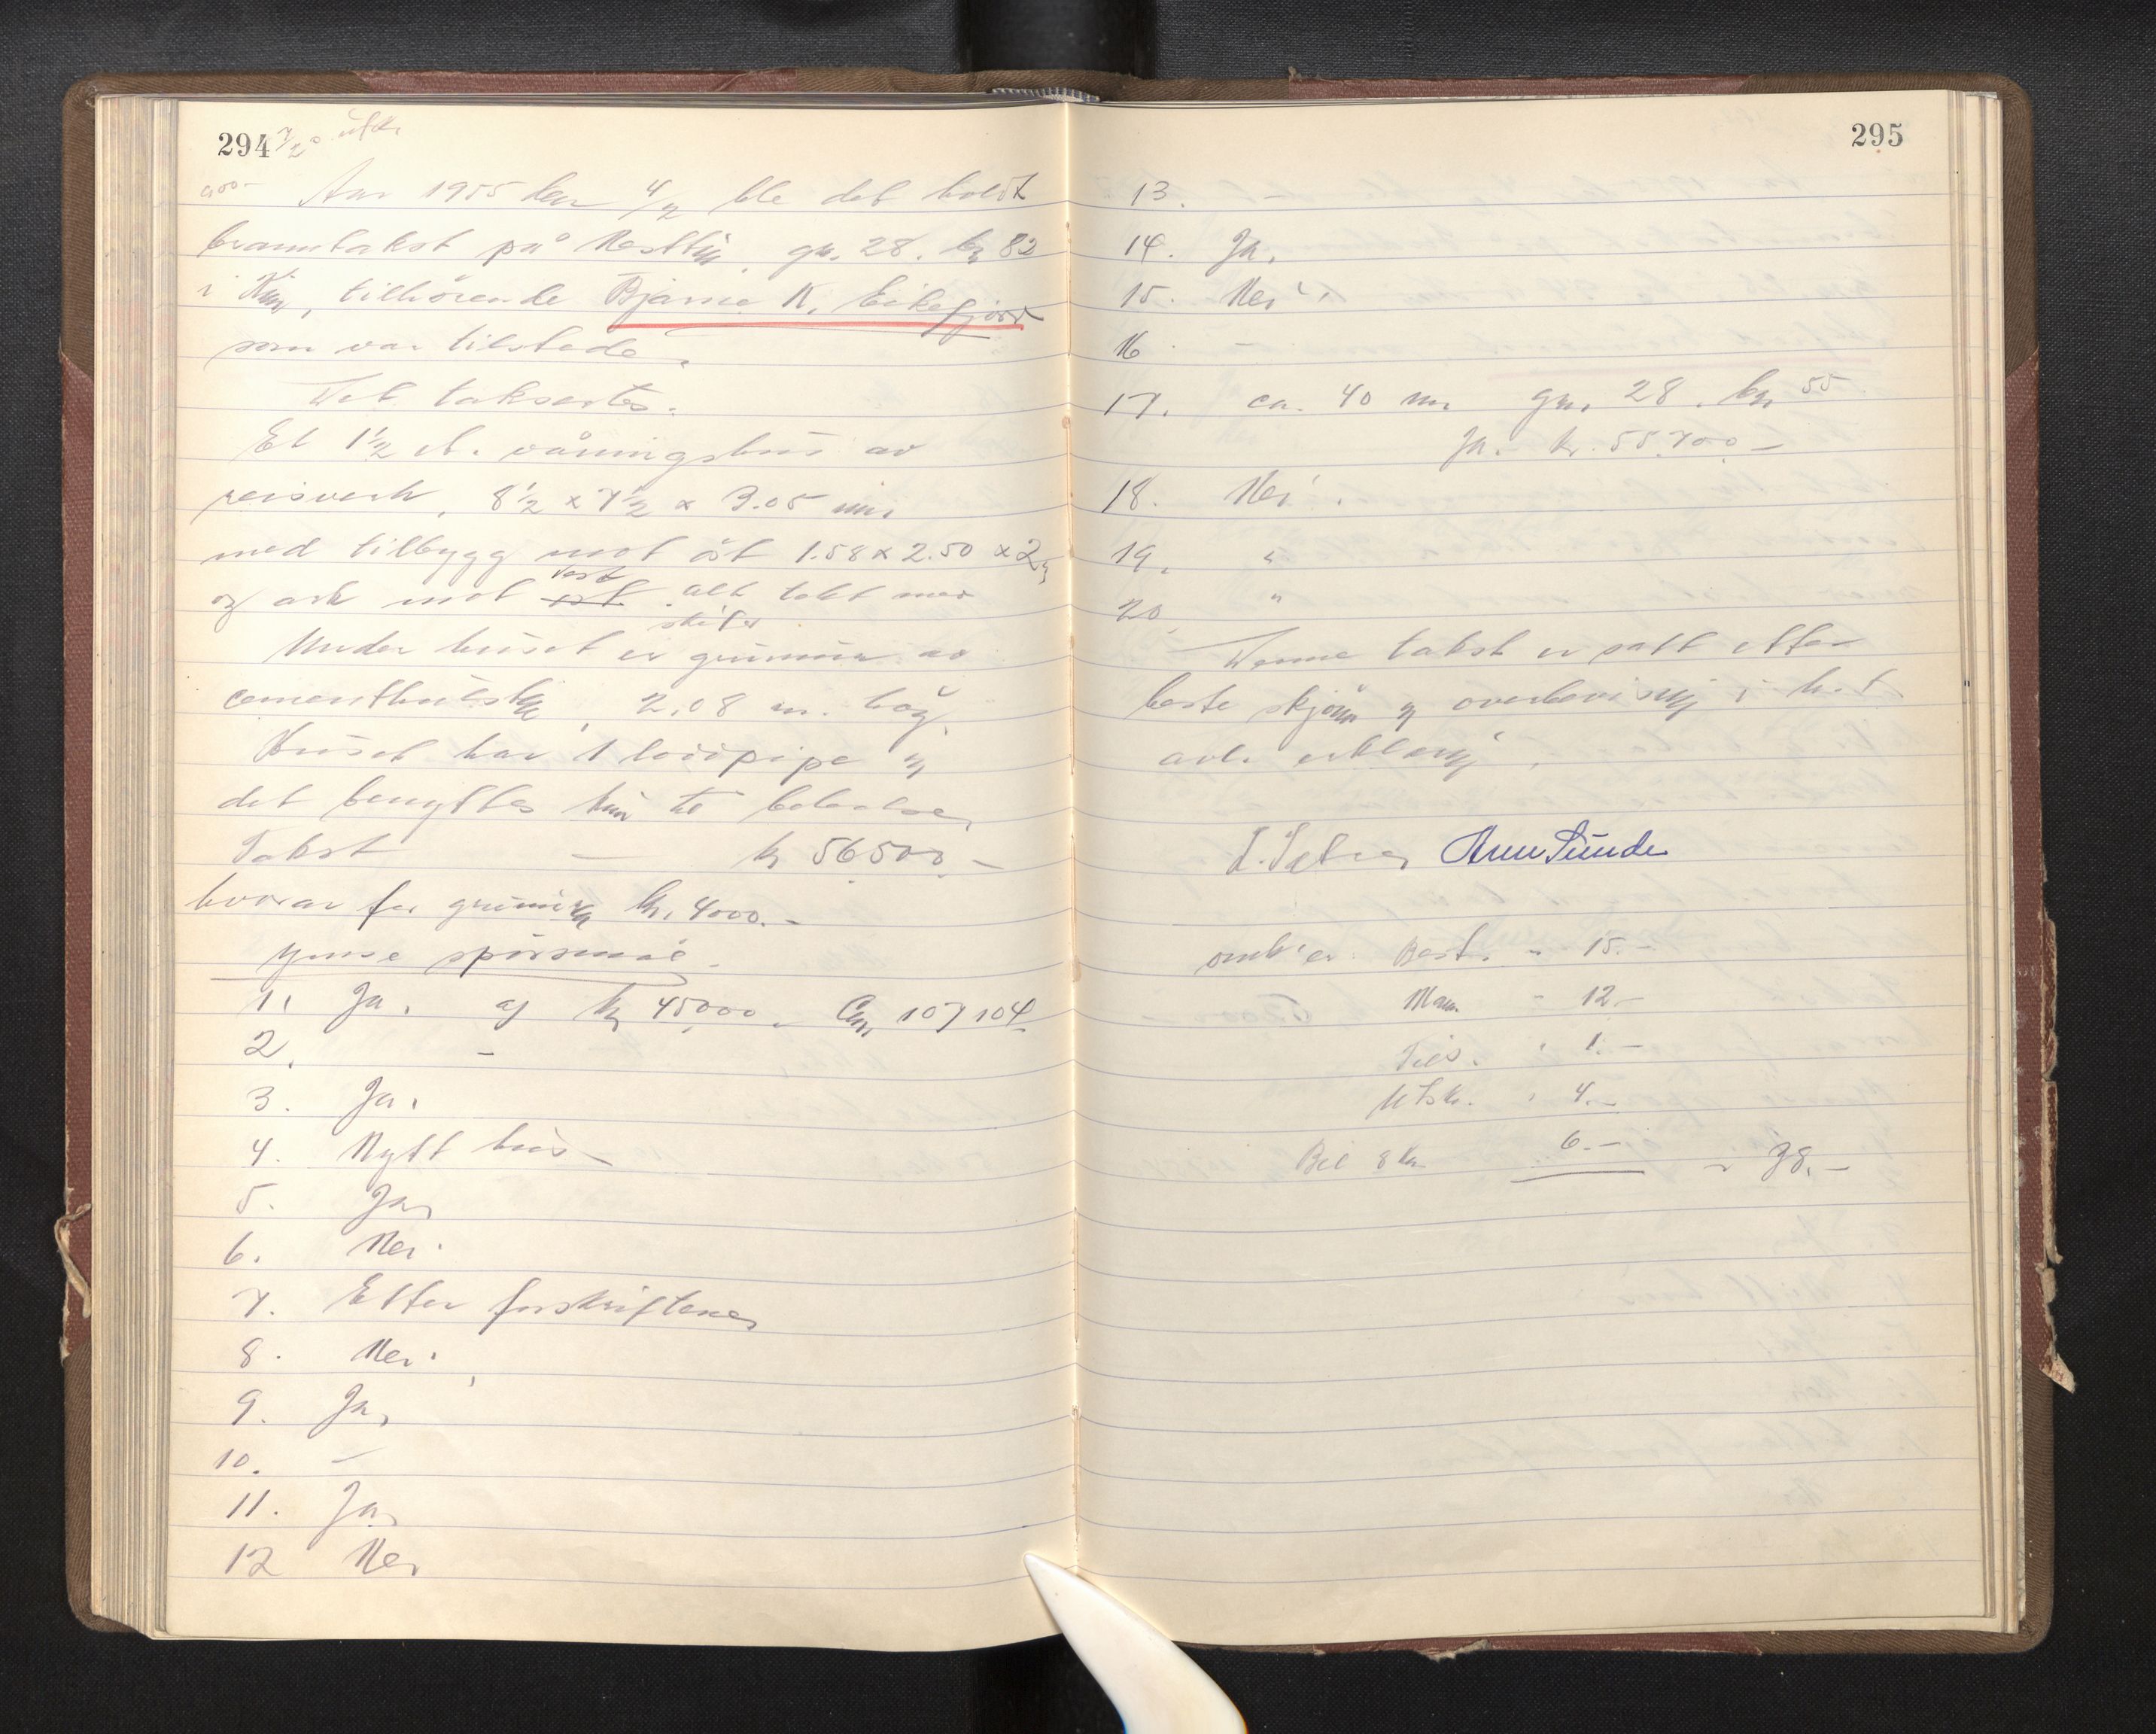 294 7/2 0 utsk.
Aar 1955 den 4/2 ble det holdt
branntakst på gn. 28. bn 82
i Kinn, tilhörende Bjarne K. Eikefjord
som var tilstede.
Det taksertes.
Et 1 1/2 et. våningshus av
reisverk, 8 1/2 x 7 1/2 x 3.05 m.
med tilbygg mot öst 1.58 x 2.50 x 2,
vest
og ark mot öst alt tekt med
skifer
Under huset er grunnmur av
2.08 m. höy.
Huset har 1 loddpipe og
det benyttes kun til beboelse.
Takst — kr 56.500.-
hvorav for grunnmur kr. 4000.-
Ymse spörsmål.
1. Ja. af kr 45000. 107104
2. -
3. Ja.
4. Nytt hus
5. Ja
6. Nei.
7. Etter forskriftene
8. Nei.
9. Ja
10. -
11. Ja
12 Nei
295
13. -
14. Ja.
15. Nei.
16 -
17. ca. 40 m. gn. 28. bn 55
Ja. kr. 55.700.-
18. Nei.
19. "
20 "
Denne takst er satt etter
beste skjönn og overbevisning i h.t
avl. erklæring.
Sunde
omk'er: Best. " 15.-
Mann. " 12.-
Tils. " 1.-
Utsk. " 4.-
Bil 8 km 6.- " 38.-